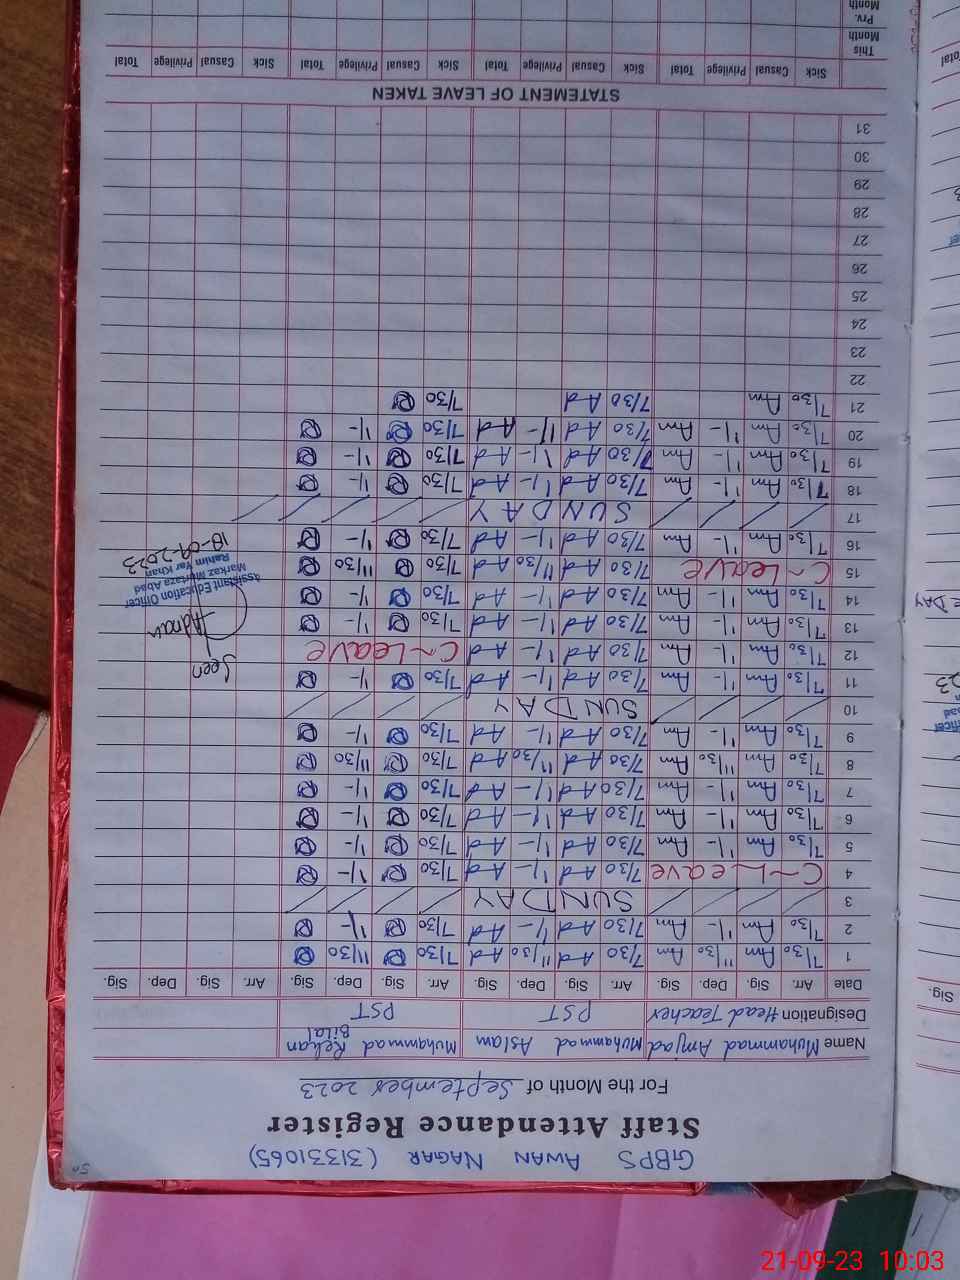 GBPS AWAN NAGAR (31331065)
Staff Attendance Register
For the Month of September 2023
Name Muhammad Amjad Muhammad Aslam Muhammad Rehan Bilal
Designation Head Teacher PST PST
Date Arr. Sig. Dep. Sig. Arr. Sig. Dep. Sig. Arr. Sig. Dep. Sig. Arr. Sig. Dep. Sig.
1 7/30 Am 11/30 Am 7/30 Ad 11/30 Ad 7/30 R 11/30 R
2 7/30 Am 11/- Am 7/30 Ad 1/- Ad 7/30 R 1/- R
3 SUNDAY
4 C-Leave 7/30 Ad 1/- Ad 7/30 R 1/- R
5 7/30 Am 1/- Am 7/30 Ad 1/- Ad 7/30 R 1/- R
6 7/30 Am 1/- Am 7/30 Ad 1/- Ad 7/30 R 1/- R
7 7/30 Am 1/- Am 7/30 Ad 1/- Ad 7/30 R 1/- R
8 7/30 Am 11/30 Am 7/30 Ad 11/30 Ad 7/30 R 11/30 R
9 7/30 Am 1/- Am 7/30 Ad 1/- Ad 7/30 R 1/- R
10 SUNDAY
11 7/30 Am 1/- Am 7/30 Ad 1/- Ad 7/30 R 1/- R
12 7/30 Am 1/- Am 7/30 Ad 1/- Ad C-Leave
Seen
13 7/30 Am 1/- Am 7/30 Ad 1/- Ad 7/30 R 1/- R
Adnan
14 7/30 Am 1/- Am 7/30 Ad 1/- Ad 7/30 R 1/- R
Assistant Education Officer
Markaz Murtaza Abad
Rahim Yar Khan
18-09-2023
15 C-Leave 7/30 Ad 11/30 Ad 7/30 R 11/30 R
16 7/30 Am 1/- Am 7/30 Ad 1/- Ad 7/30 R 1/- R
17 SUNDAY
18 7/30 Am 1/- Am 7/30 Ad 1/- Ad 7/30 R 1/- R
19 7/30 Am 1/- Am 7/30 Ad 1/- Ad 7/30 R 1/- R
20 7/30 Am 1/- Am 7/30 Ad 1/- Ad 7/30 R 1/- R
21 7/30 Am 7/30 Ad 7/30 R
22
23
24
25
26
27
28
29
30
31
STATEMENT OF LEAVE TAKEN
Sick Casual Privilege Total Sick Casual Privilege Total Sick Casual Privilege Total Sick Casual Privilege Total
This Month
Prv. Month
21-09-23 10:03